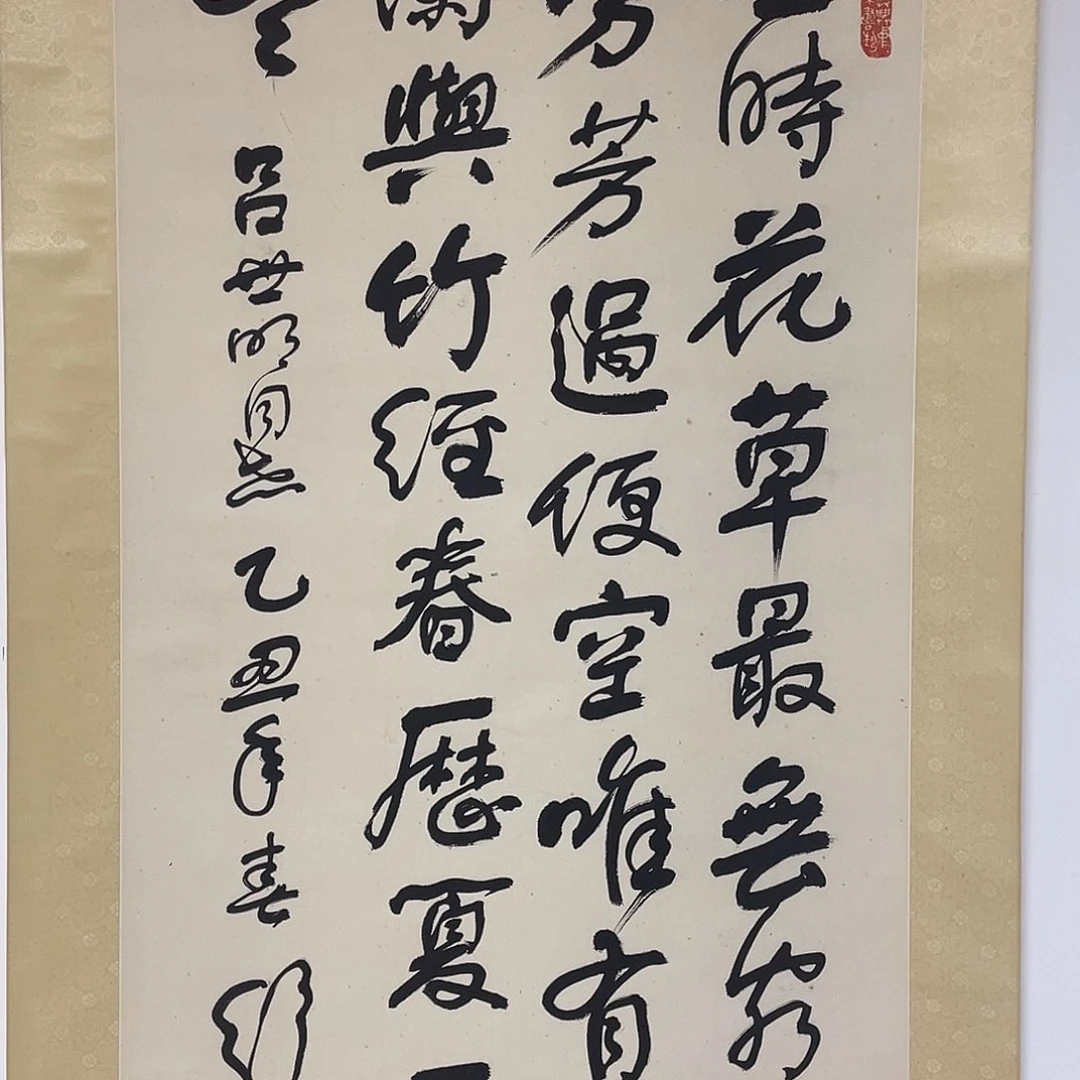 時花草最無窮
芬芳過便空唯有
蘭與竹經春歷夏
呂世明同志 乙丑年春